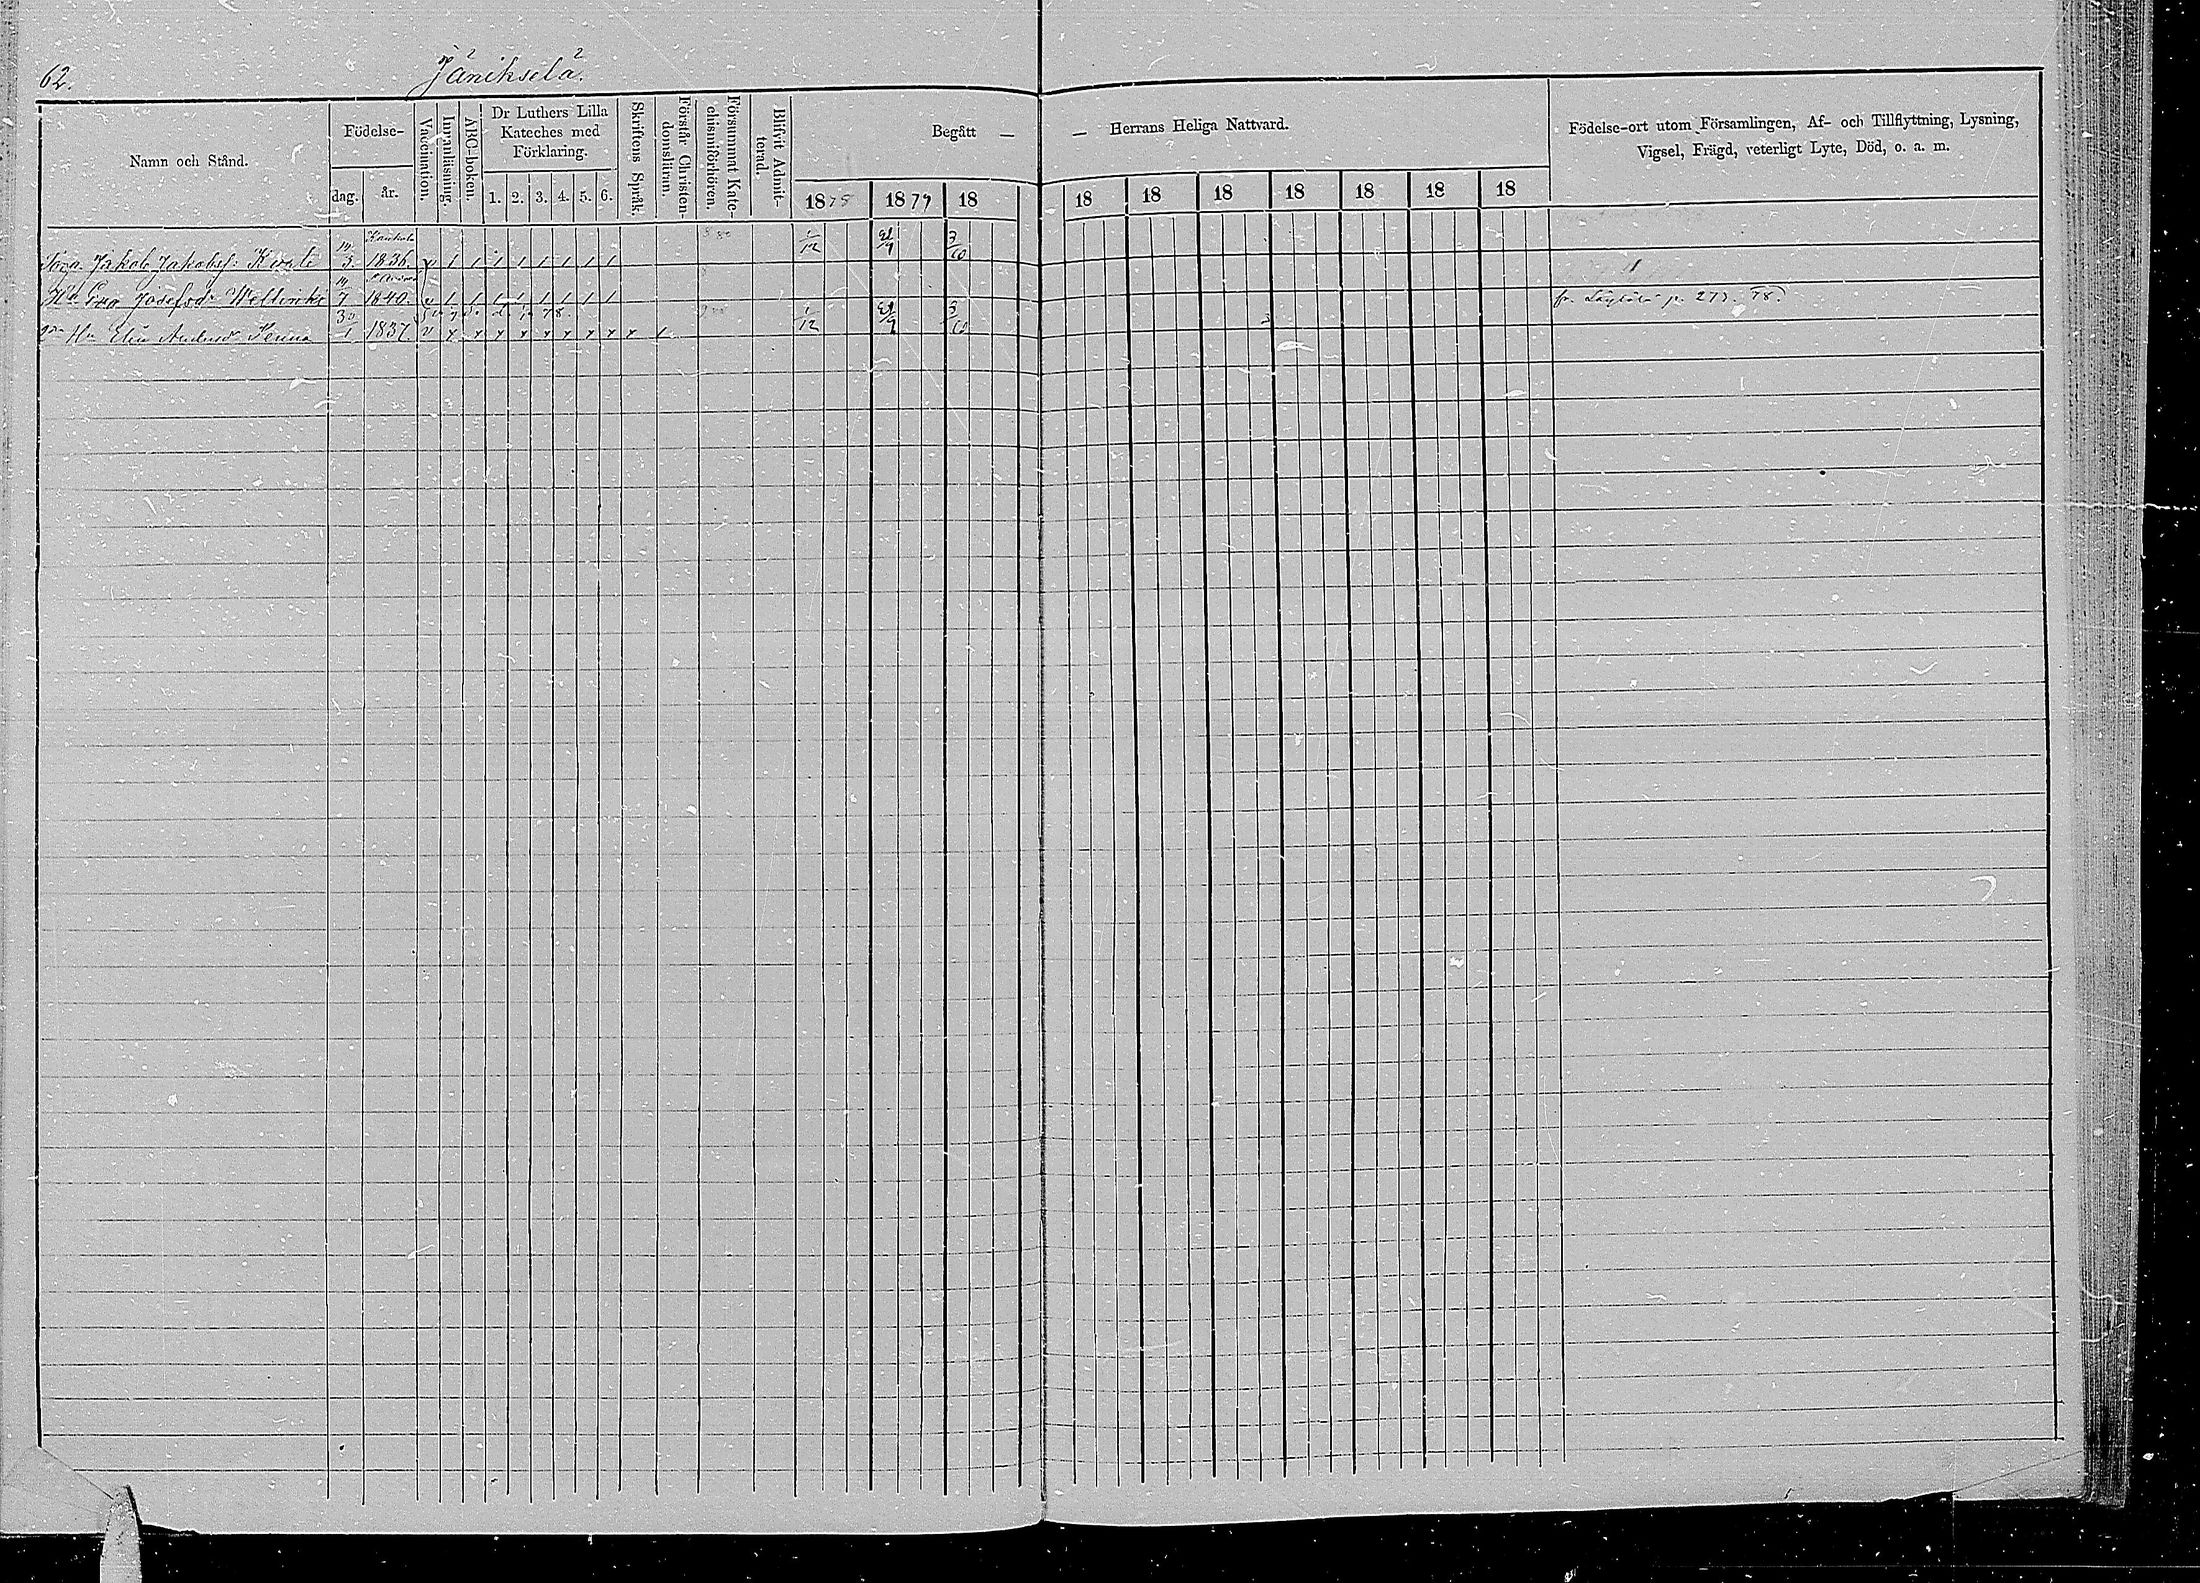 62.
Jänikselä.
Namn och Stånd.
Födelse-
dag.
år.
Vaccination.
Innanläsning.
ABC-boken.
Dr Luthers Lilla
Kateches med
Förklaring.
1. 2. 3. 4. 5. 6.
Skriftens Språk.
Förstår Christen-
domsläran.
Försummat Kate-
chismiförhören.
Blifvit Admit-
terad.
Begått —
1878 1879 18
— Herrans Heliga Nattvard.
18 18 18 18 18 18 18
Födelse-ort utom Församlingen, Af- och Tillflyttning, Lysning,
Vigsel, Frägd, veterligt Lyte, Död, o. a. m.
Jakob Jakobss. 19/3 1836. v 1 1 1 1 1 1 1 1 1/12 21/9 3/10
Hu Eva Josefsdr 19/7 1840. v 1 1 1 1 1 1 1 1 fr. p. 273. 78.
2dra Hu Anders 30/1 1837. v x x x x x x x x x 1 1/12 21/9 3/10